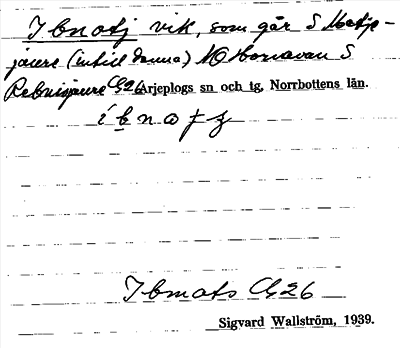 Ibnatj vik, som går S Matje-
jaure (intill denna) NO Hornavan S
Rebnisjaure C,26 Arjeplogs sn och tg, Norrbottens län.
Ibmats C,26
Sigvard Wallström, 1939.